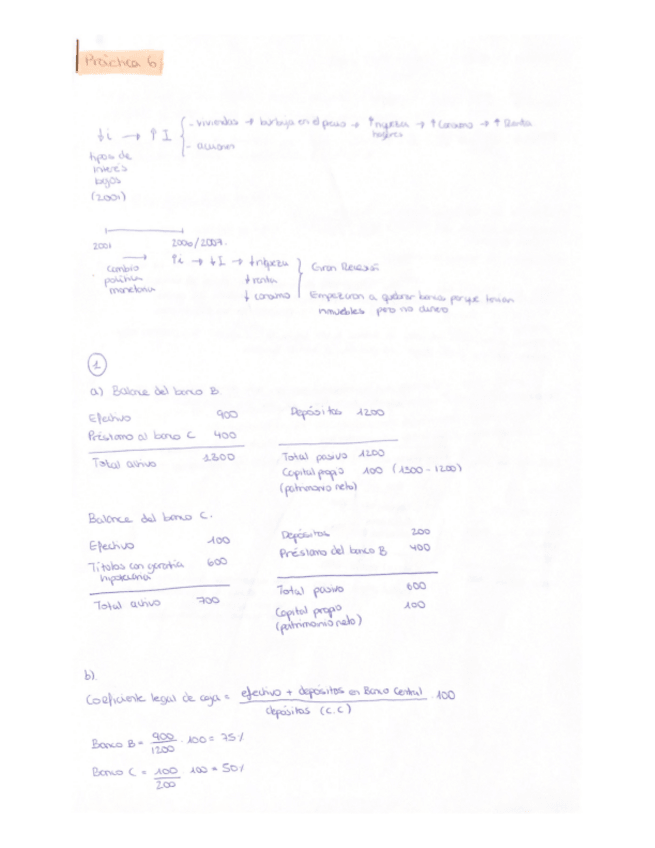 Práctica 6
↓i → ↑I { - viviendas → burbuja en el precio → ↑riqueza hogares → ↑Consumo → ↑ Renta
- acciones
tipos de
interés
bajos
(2001)
2001 2006/2007.
cambio
política
monetaria
↑i → ↓I → ↓riqueza } Gran Recesión
↓renta
↓ consumo Empezaron a quebrar bancos porque tenían
inmuebles pero no dinero
1
a) Balance del banco B.
Efectivo 900 Depósitos 1200
Préstamo al banco C 400
Total activo 1300 Total pasivo 1200
Capital propio 100 (1300 - 1200)
(patrimonio neto)
Balance del banco C.
Efectivo 100 Depósitos 200
Títulos con garantía 600 Préstamo del banco B 400
hipotecaria
Total activo 700 Total pasivo 600
Capital propio 100
(patrimonio neto)
b).
Coeficiente legal de caja = efectivo + depósitos en Banco Central / depósitos (C.C) · 100
Banco B = 900/1200 · 100 = 75%
Banco C = 100/200 · 100 = 50%